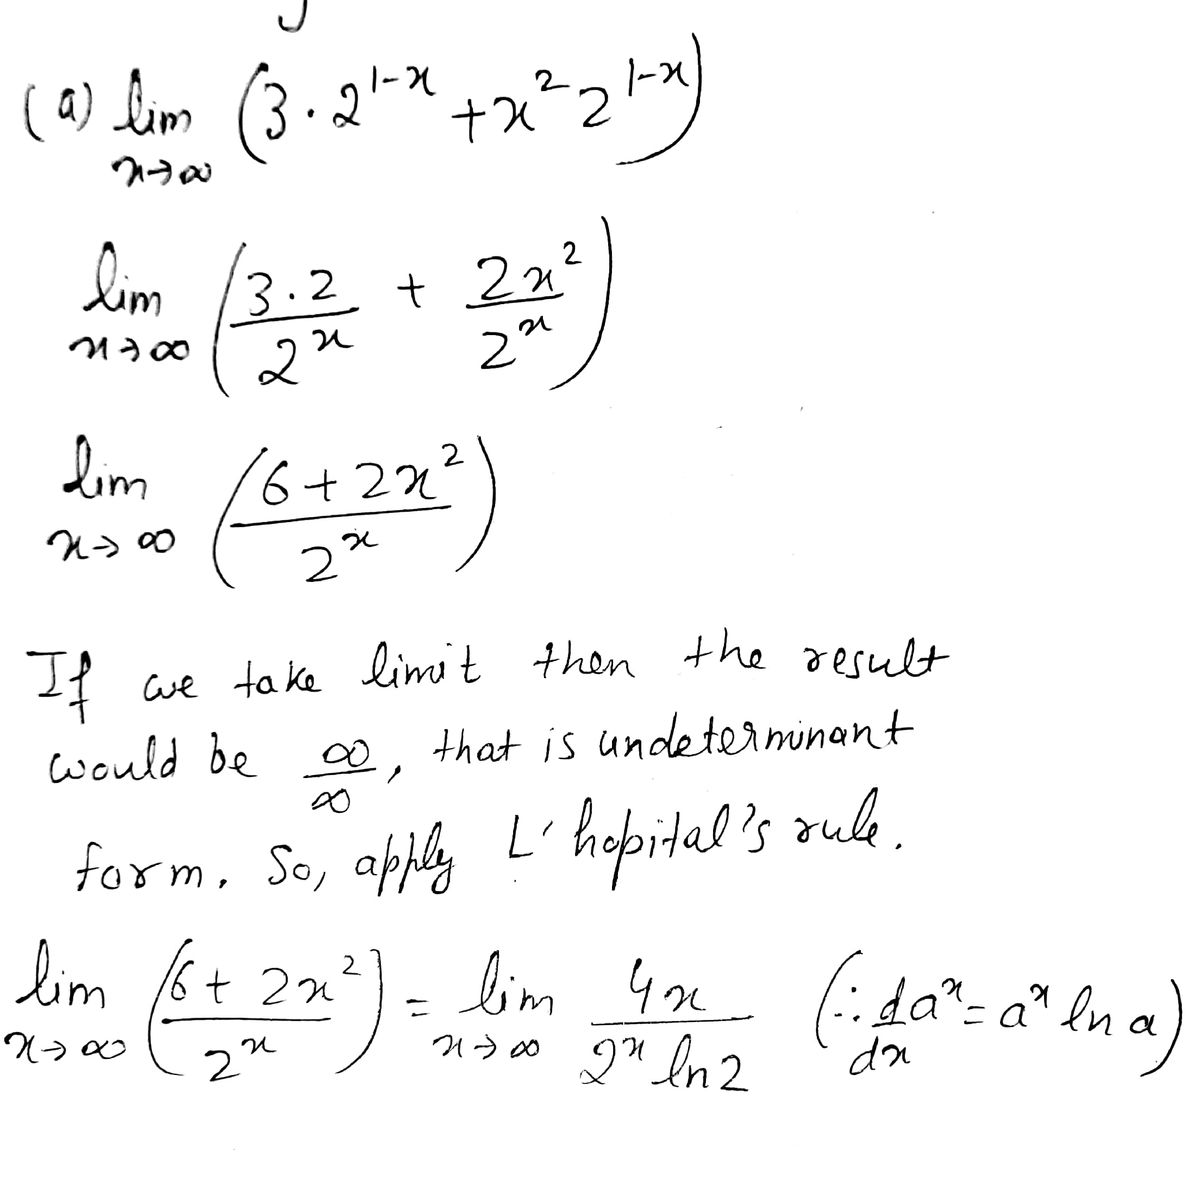 (a) lim x→∞ (3·2^(1-x) + x^2 2^(1-x))
lim x→∞ (3.2/2^x + 2x^2/2^x)
lim x→∞ ((6+2x^2)/2^x)
If we take limit then the result
would be ∞/∞, that is undeterminant
form. So, apply L'hopital's rule.
lim x→∞ ((6+2x^2)/2^x) = lim x→∞ 4x/(2^x ln2) (∴ da^x/dx = a^x ln a)